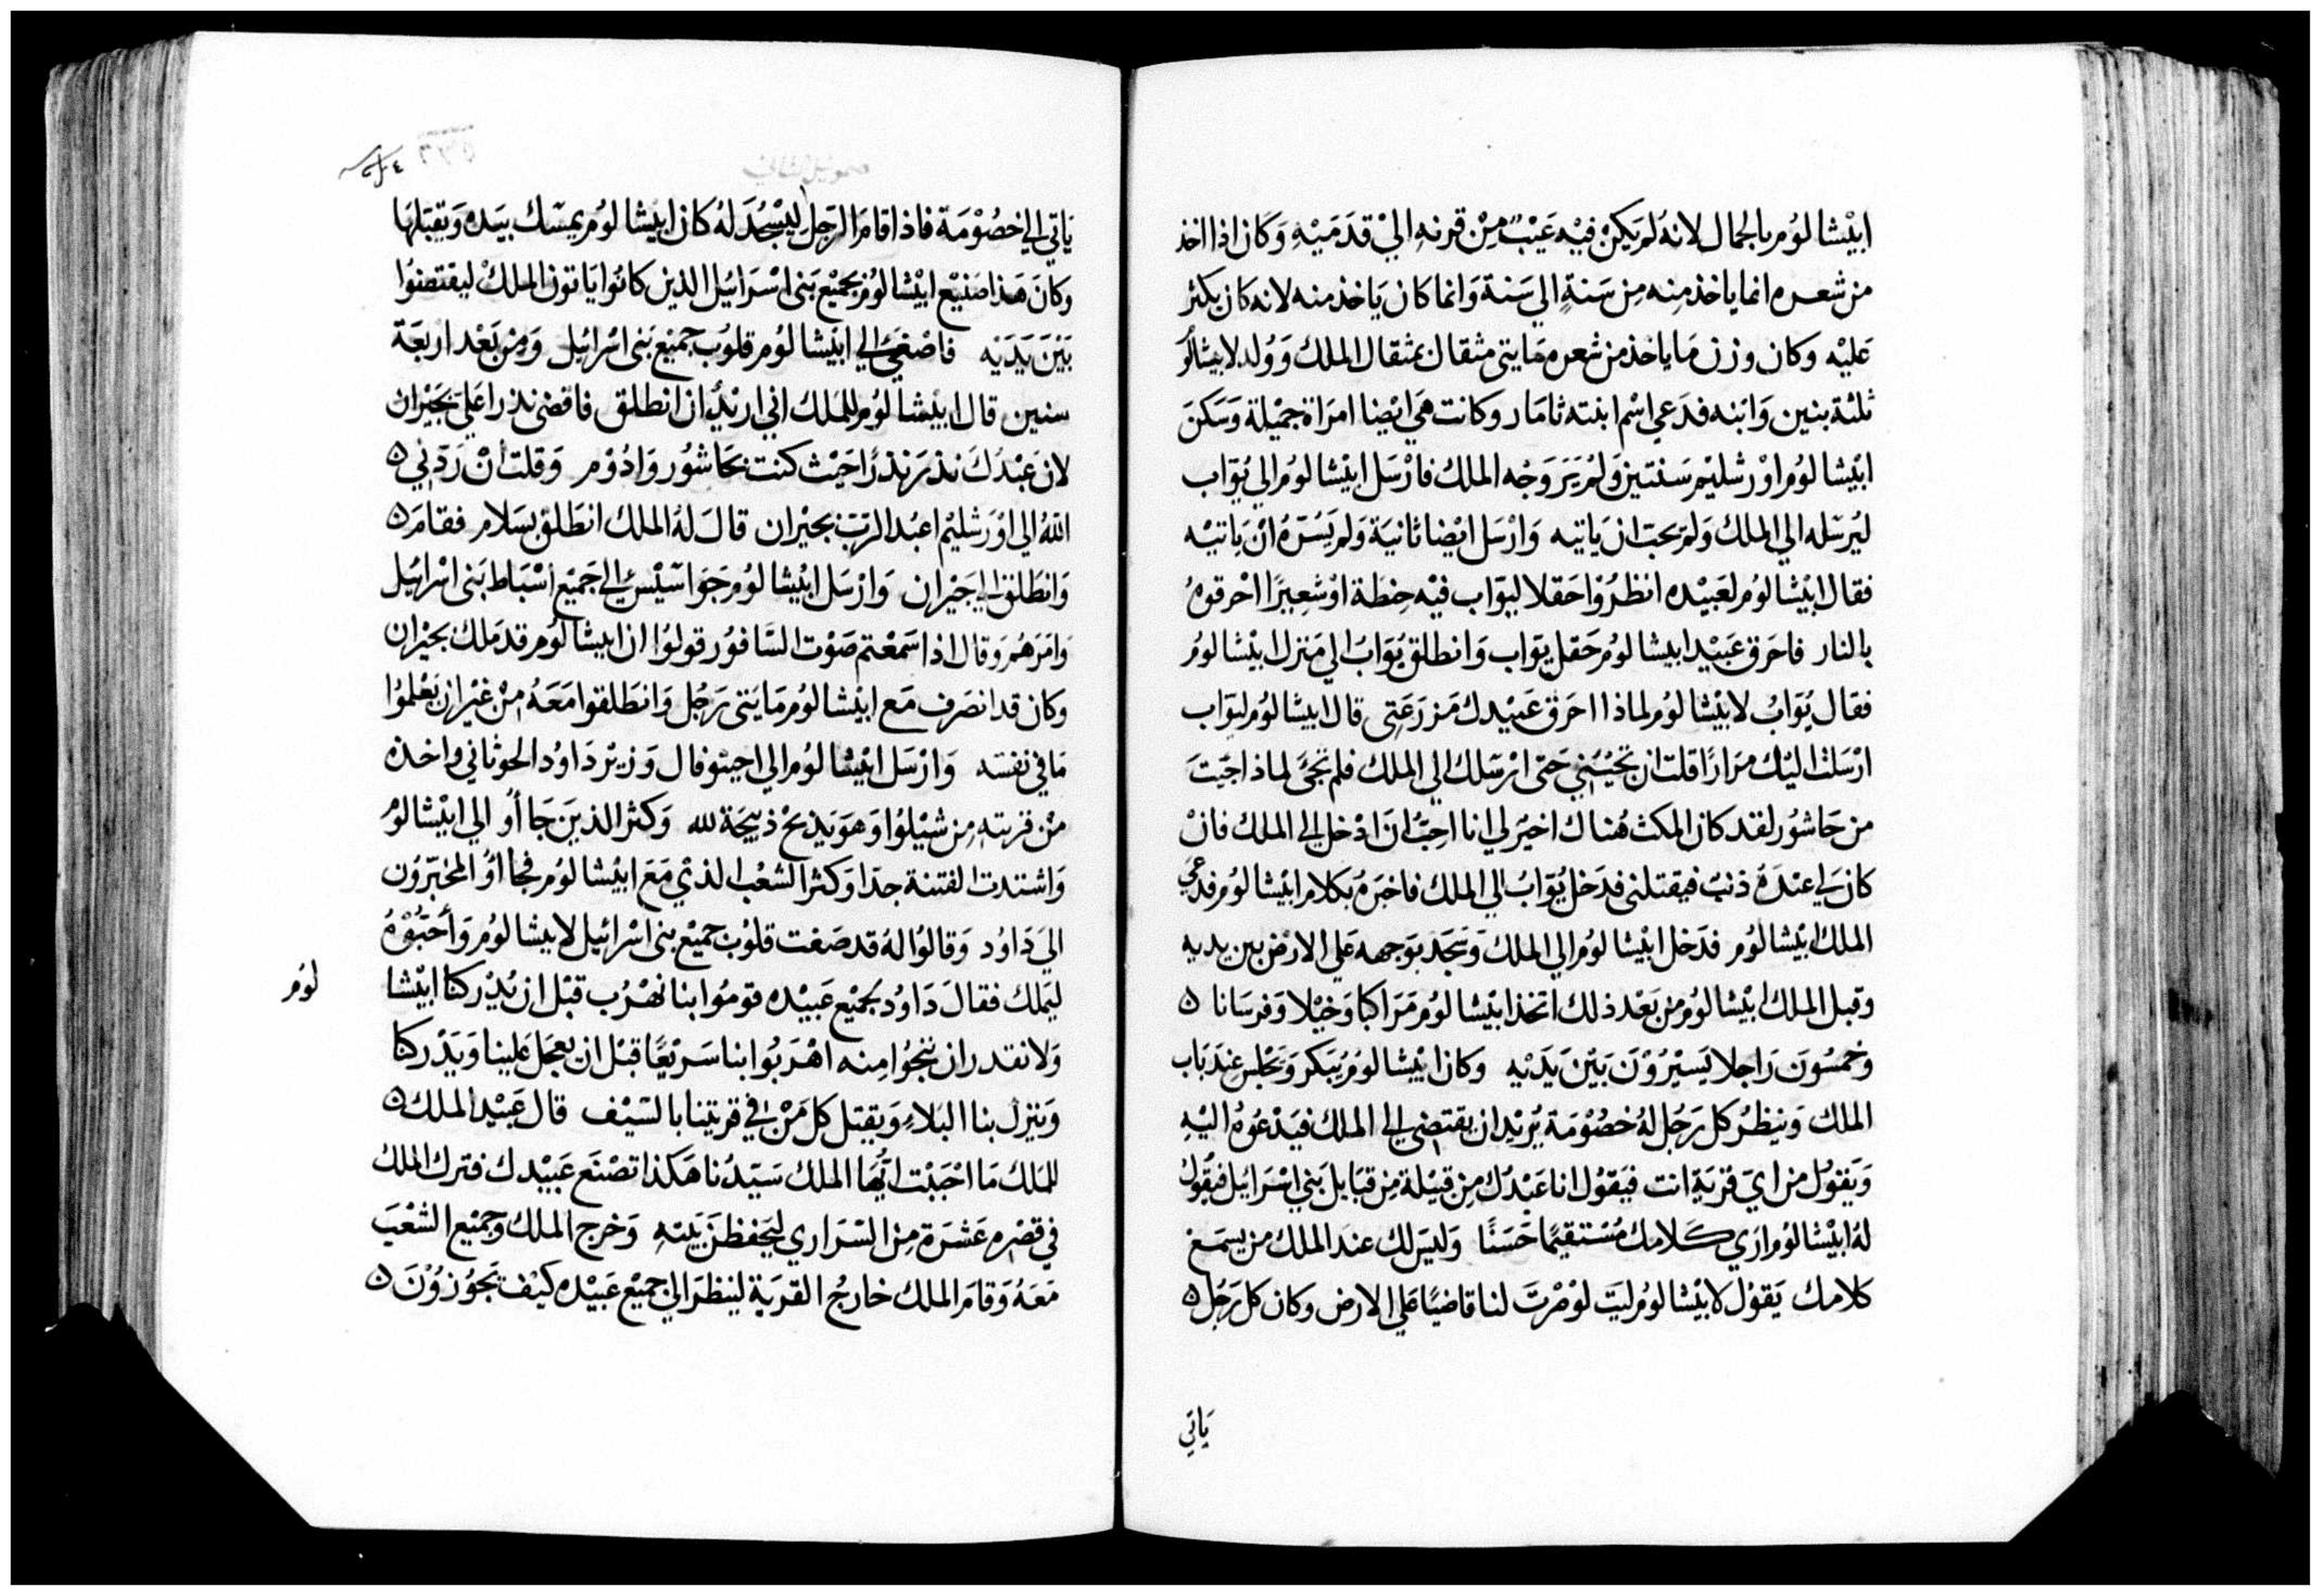 ابيشالوم بالجمال لانه لم يكن فيه عيب من قرنه الي قدميه وكان اذا اخذ
من شعره انما ياخذ منه من سنة الي سنة وانما كان ياخذ منه لانه كان يكثر
عليه وكان وزن ما ياخذ من شعره مايتي مثقال بمثقال الملك وولد لابيشالو
ثلثة بنين وابنه فدعي اسم ابنته ثامار وكانت هي ايضا امراة جميلة وسكن
ابيشالوم اورشليم سنتين ولم ير وجه الملك فارسل ابيشالوم الي يواب
ليرسله الي الملك ولم يحب ان ياتيه وارسل ايضا ثانية ولم يسره ان ياتيه
فقال ابيشالوم لعبيده انظروا حقلا ليواب فيه حنطة او شعيرا احرقوه
بالنار فاحرق عبيد ابيشالوم حقل يواب وانطلق يواب الي منزل ابيشالوم
فقال يواب لابيشالوم لماذا احرق عبيدك مزرعتي قال ابيشالوم ليواب
ارسلت اليك مرارا قلت ان تجيني حتي ارسلك الي الملك فلم تجئ لماذا جيت
من جاشور لقد كان المكث هناك اخير لي انا احب ان ادخل الي الملك فان
كان لي عنده ذنب فيقتلني فدخل يواب الي الملك فاخبره بكلام ابيشالوم فدعي
الملك ابيشالوم فدخل ابيشالوم الي الملك وسجد بوجهه علي الارض بين يديه
وقبل الملك ابيشالوم من بعد ذلك اتخذ ابيشالوم مراكبا وخيلا وفرسانا ه
وخمسون راجلا يسيرون بين يديه وكان ابيشالوم يبكر ويجلس عند باب
الملك وينظر كل رجل له خصومة يريد ان يقتضي الي الملك فيدعوه اليه
ويقول من اي قرية انت فيقول انا عبدك من قبيلة من قبايل بني اسرائيل فيقول
له ابيشالوم اري كلامك مستقيما حسنا وليس لك عند الملك من يسمع
كلامك يقول لابيشالوم ليت لو صرت لنا قاضيا علي الارض وكان كل رجل ه
ياتي
ياتي الي خصومة فاذا قام الرجل ليسجد له كان ابيشالوم يمسك بيده ويقبلها
وكان هذا صنيع ابيشالوم بجميع بني اسرائيل الذين كانوا ياتون الملك ليقتضوا
بين يديه فاصغي الي ابيشالوم قلوب جميع بني اسرائيل ومن بعد اربعة
سنين قال ابيشالوم للملك اني اريد ان انطلق فاقضي نذرا علي بحيران
لان عبدك نذر نذرا حيث كنت بجاشور وادوم وقلت ان ردني ه
الله الي اورشليم اعبد الرب بحيران قال له الملك انطلق بسلام فقام ه
وانطلق الي حيران وارسل ابيشالوم جواسيس الي جميع اسباط بني اسرائيل
وامرهم وقال اذا سمعتم صوت السافور قولوا ان ابيشالوم قد ملك بحيران
وكان قد انصرف مع ابيشالوم مايتي رجل وانطلقوا معه من غير ان يعلموا
ما في نفسه وارسل ابيشالوم الي احيتوفال وزير داود الحوثاني واخذه
من قريته من شيلوا وهو يذبح ذبيحة لله وكثر الذين جااوا الي ابيشالوم
واشتدت الفتنة جدا وكثر الشعب الذي مع ابيشالوم فجااوا المخبرون
الي داود وقالوا له قد صغت قلوب جميع بني اسرائيل لابيشالوم واحبوه
ليملك فقال داود لجميع عبيده قوموا بنا نهرب قبل ان يدركنا ابيشا
لوم
ولا نقدر ان ننجوا منه اهربوا بنا سريعا قبل ان يعجل علينا ويدركنا
وينزل بنا البلاء ويقتل كل من في قريتنا بالسيف قال عبيد الملك ه
للملك ما احببت ايها الملك سيدنا هكذا تصنع عبيدك فترك الملك
في قصره عشرة من السراري ليحفظن بيته وخرج الملك وجميع الشعب
معه وقام الملك خارج القرية لينظر الي جميع عبيده كيف يجوزون ه